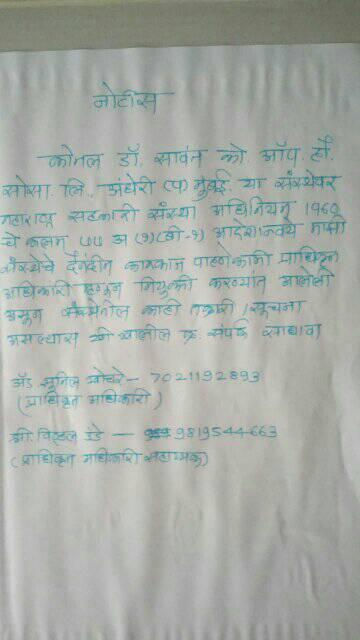 नोटीस
कोनल डॉ. सावंत को. ऑप. हौ.
सोसा. लि., अंधेरी (प) मुंबई. या संस्थेवर
महाराष्ट्र सहकारी संस्था अधिनियम 1960
चे कलम ७७ अ (१)(बी-१) आदेशान्वये माझी
संस्थेचे दैनंदीन कामकाज पाहणेकामी प्राधिकृत
अधिकारी म्हणून नियुक्ती करण्यांत आलेली
असून संस्थेतील काही तक्रारी / सूचना
असल्यास खालील क्र. संपर्क साधावा
अॅड. सुनिल खोचरे - 7021192893
(प्राधिकृत अधिकारी)
श्री. विठ्ठल उंडे - 9819544663
(प्राधिकृत अधिकारी सहाय्यक)